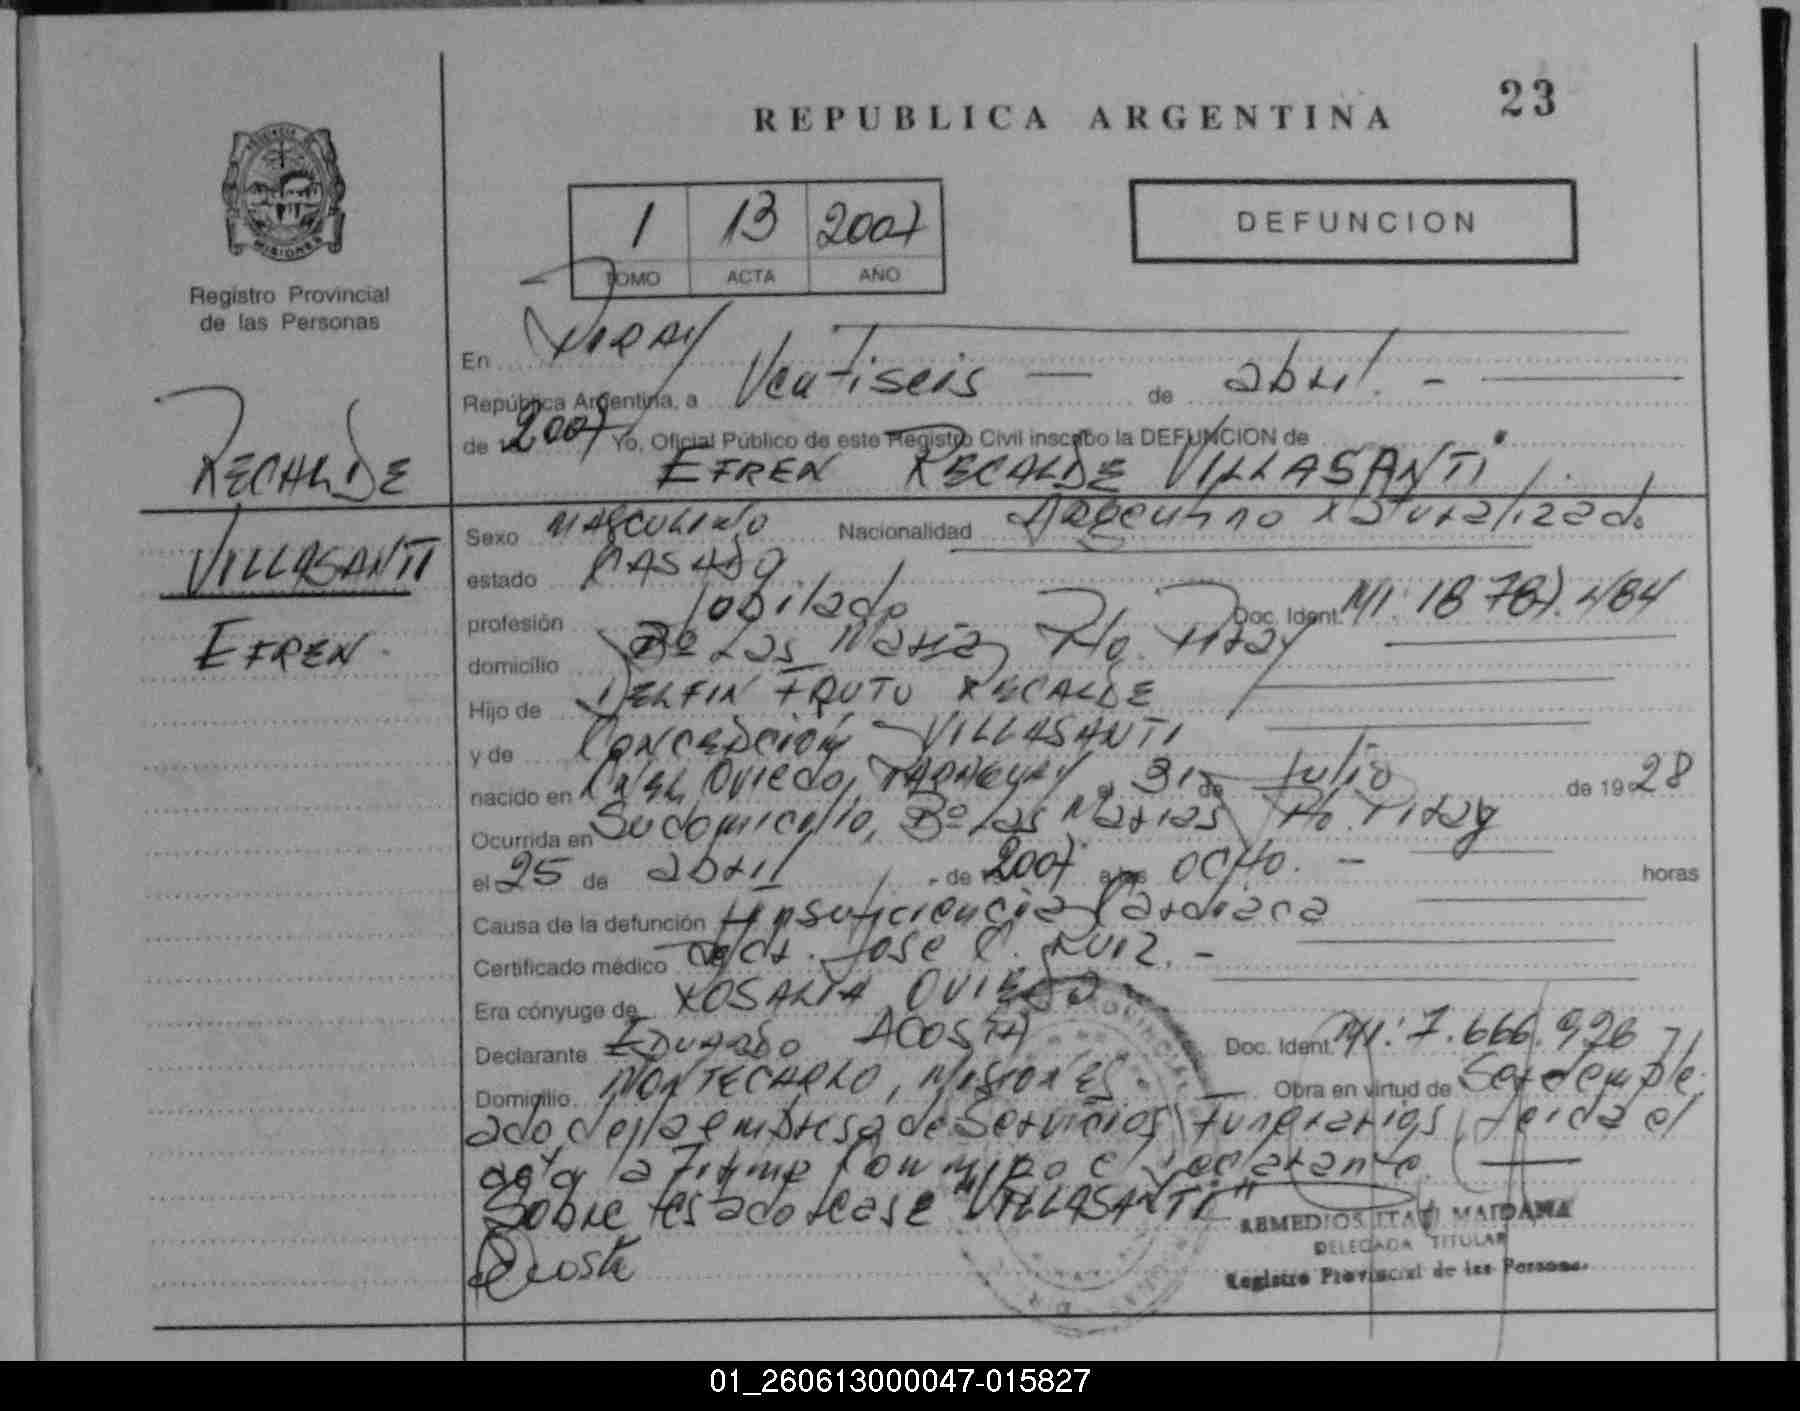 23
REPUBLICA ARGENTINA
1 13 2007
TOMO ACTA AÑO
DEFUNCION
PROVINCIA DE
MISIONES
Registro Provincial
de las Personas
RECALDE
VILLASANTI
EFREN
En PIRAY
República Argentina, a Ventiseis — de abril. -
de 2007 Yo, Oficial Público de este Registro Civil inscribo la DEFUNCION de
EFREN RECALDE VILLASANTI
Sexo MASCULINO Nacionalidad Argentino Naturalizado
estado CASADO
profesión Jobilado Doc. Ident. MI: 18 787.484
domicilio Bº Las Marias Pto. Piray
Hijo de DELFIN FRUTO RECALDE
y de CONCEPCION VILLASANTI
nacido en CNEL Oviedo, PARAGUAY el 31 de Julio de 1928
Ocurrida en Su domicilio, Bº Las Marias Pto. Piray
el 25 de abril - de 2007 a las OCHO. - horas
Causa de la defunción Insuficiencia Cardiaca
Certificado médico Jose C. RUIZ. -
Era cónyuge de ROSALIA OVIEDO
Declarante EDUARDO ACOSTA Doc. Ident. MI: 7.666.926
Domicilio MONTECARLO, MISIONES. Obra en virtud de Ser emple
ado de la empresa de Servicios Funerarios, leida el
acta la Firma Conmigo el declarante.
Sobre respado lease "VILLASANTI"
Acosta
REMEDIOS ITATI MAIDANA
DELEGADA TITULAR
Registro Provincial de las Personas
01_260613000047-015827